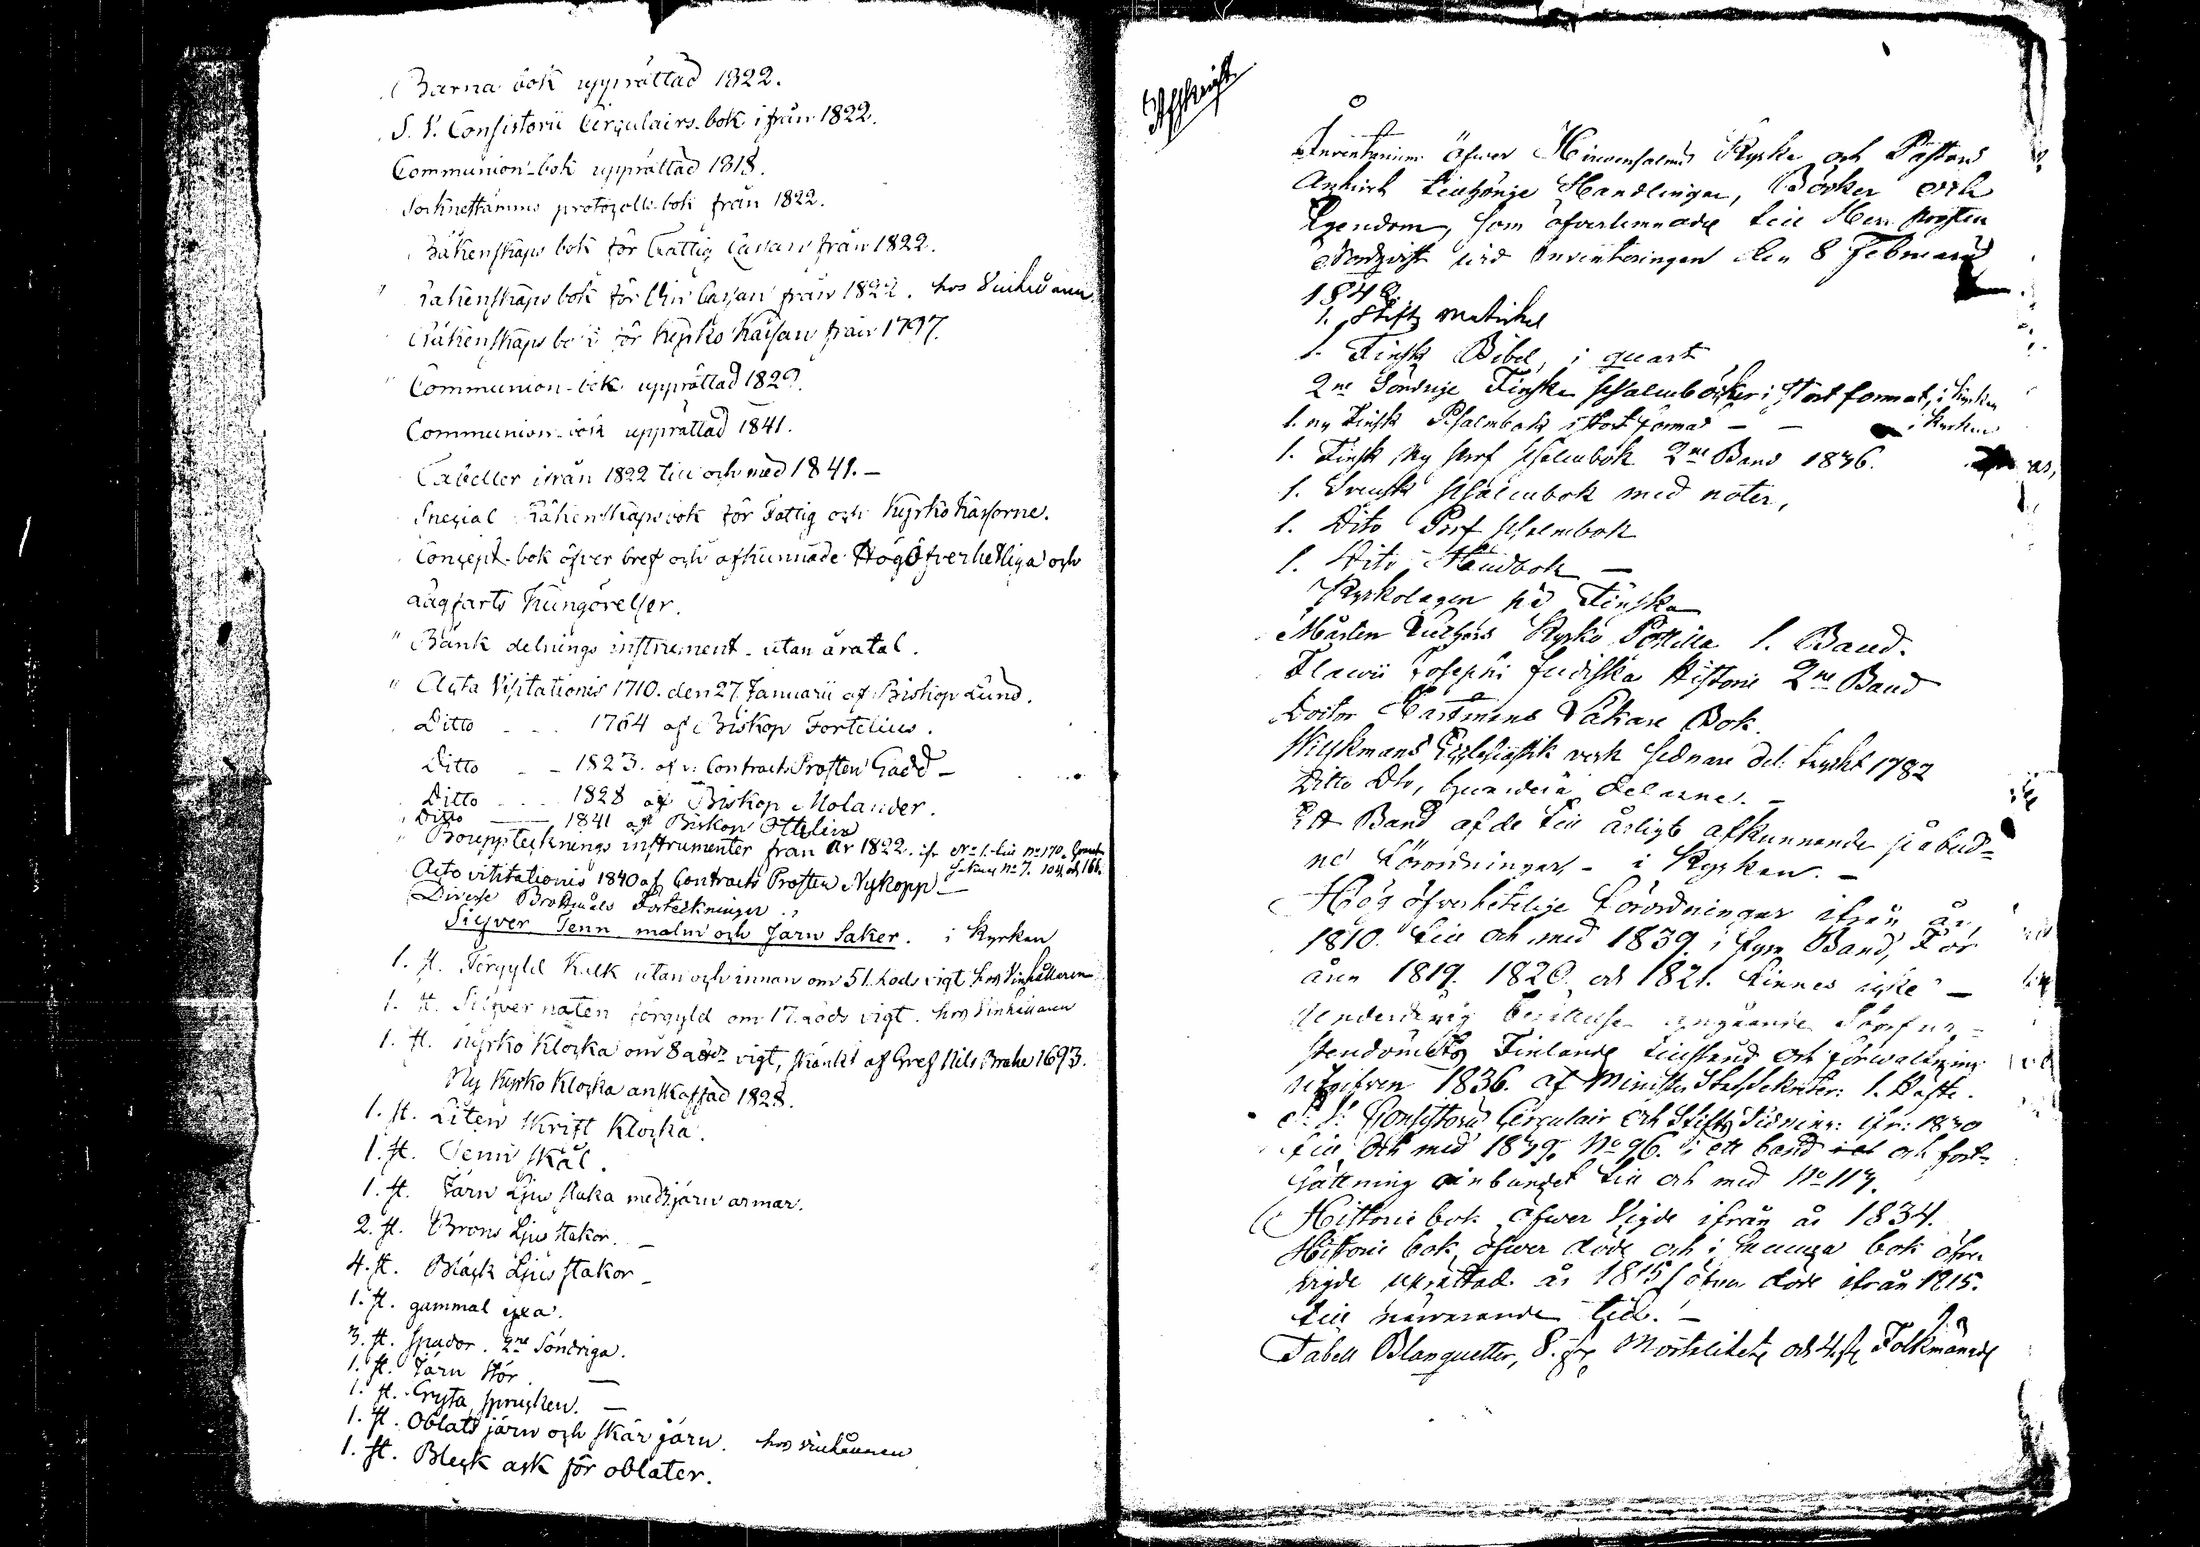 Barna bok upprättad 1822.
S. V. Consistorii Circulairs-bok ifrån 1822.
Communion-bok upprättad 1818.
Socknestämmo protocolls bok från 1822.
Räkenskaps bok för Fattig Cassan från 1822.
" Räkenskaps bok för Cassan från 1822. hos
Räkenskaps bok för Kyrko Kassan från 1797.
" Communion-bok upprättad 1829.
Communion-bok upprättad 1841.
Tabeller ifrån 1822 till och med 1841. —
Special Räkenskapsbok för Fattig och Kyrko Kassorne.
Concept-bok öfver bref och afkunnade HögÖfverhetliga och
Kungörelser.
" Bänk delnings instrument utan åratal.
" Acta Visitationis 1710. den 27 Januarii af Biskop Lund.
Ditto - - - 1764 af Biskop Fortelius.
Ditto - - 1823. af v: Contracts Prosten Gadd —
Ditto - - - 1828 af Biskop Molander.
Ditto — 1841 af Biskop Ottelin
" Boupptecknings instrumenter från år 1822. ifr No 1. till no 170.
saknas No 7. 104. och 166.
Acta vititationis 1840 af Contracts Prosten Nykopp —
Diverse Brottmåls Förteckningar
Silfver Tenn malm och Jarn Saker. i Kyrkan
1. st. Förgyld Kalk utan och innan om 51. Lods vigt hos Vinhållaren
1. st. Silfver paten förgyld om 17. Lods vigt. hos Vinhållaren
1. st. Kyrko Klocka om 8 vigt, skänkt af Gref Nils Brahe 1693.
Ny Kyrko Klocka anskaffad 1828.
1. st. Liten Skrift Klocka.
1. st. Tenn skål.
1. st. Järn Ljus staka med järn armar.
2. st. Brons Ljus stakor. —
4. st. Bläck Ljus stakor —
1. st. gammal yxa.
3. st. spador. 2ne Söndriga.
1. st. Järn stör. —
1. st. Gryta, sprucken. —
1. st. Oblats järn och skär järn. hos vinhållaren
1. st. Bleck ask för oblater.
Afskrift
Inventarium öfver Kyrka och Pastors
Archivet tillhörige Handlingar, Böcker och
Egendom, som öfverlemnades till Herr Prosten
vid Inventeringen den 8 Februarii
184
1. Stifts Matrikel
1. Finsk Bibel, i quart
2ne Söndrige Finska Psalmböcker i stort format, i Kyrkan
1. ny Finsk Psalmbok i stort format — — i Kyrkan
1. Finsk Ny Prof Psalmbok 2ne Band 1836.
1. Svensk Psalmbok med noter,
1. Dito Prof Psalmbok
1. Dito Handbok —
Kyrkolagen på Finska
Mårten Luthers Kyrko Postilla 1. Band.
Flavii Josephi Judiska Historie 2ne Band
Doctor Hartmans Läkare Bok.
Wilskmans Ecclesiastik verk sednare del. tryckt 1782
Ditto Dto, delarne. —
Ett Band af de till årligt afkunnande påbud=
ne Förordningar, - i Kyrkan. —
Hög öfverhetelige Förordningar ifrån år
1810. till och med 1839. i Band, För
åren 1819. 1820. och 1821. finnes icke —
Underdånig berättelse angående Storfur=
stendömets Finlands tillstånd och förvaltning
utgifven 1836. af Minister StatsSekreter: 1. Häfte.
S. V. Consistorii Circulair och Stifts Tidning: ifr: 1830
till och med 1839. No 96. i ett band och fort=
sättning inbundet till och med No 117.
Historie bok öfver Vigde ifrån år 1834.
Historie bok, öfver döde och i samma bok öfver
vigde uprättad år 1815 / öfver döde ifrån 1815.
till närvarande tid. —
Tabell Blanquetter, 8. st. Mortalitets och 4 st. Folkmängds